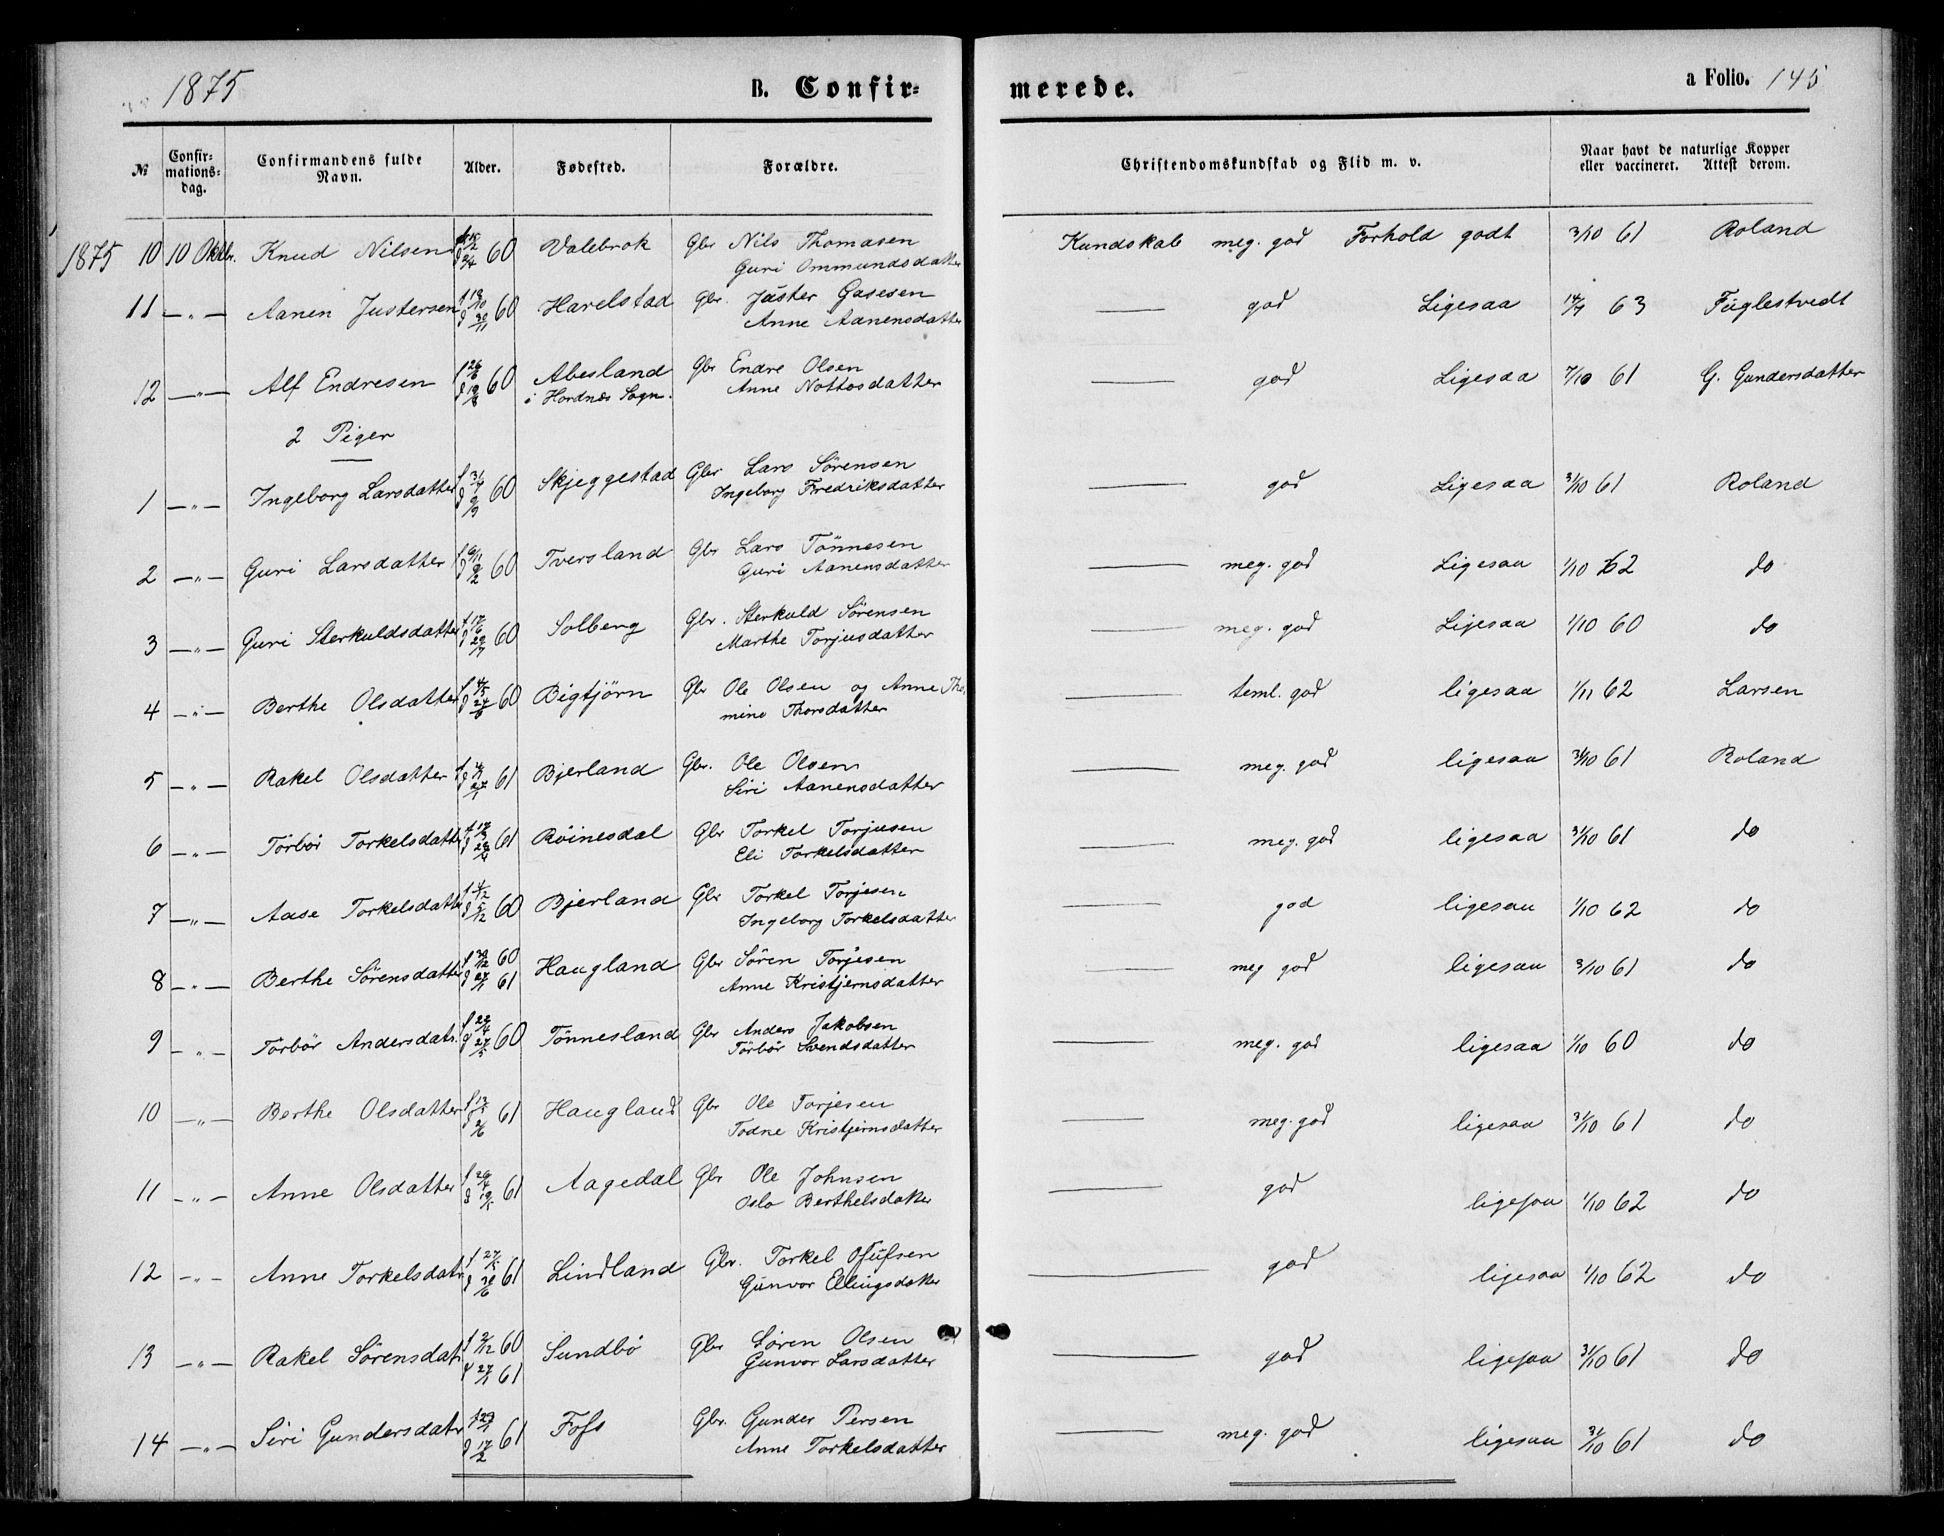 1875 B. Confirmerede. a Folio. 145
№ Confirmationsdag. Confirmandens fulde Navn. Alder. Fødested. Forældre. Christendomskundskab og Flid m. v. Naar havt de naturlige Kopper eller vaccineret. Attest derom.
1875 10 10 Oktbr. Knud Nilsen 60 Valebrok Gbr Nils Thomasen Kundskab meg. god Forhold godt 3/10 61 Roland
Guri Ommundsdatter
11 — " — Aanen Justersen f 19/10 d 30/11 60 Harelstad Gbr. Juster Gasesen — god Ligesaa 14/7 63 Fuglestvedt
Anne Aanensdatter
12 — " — Alf Endresen f 26/6 d 19/8 60 Abesland Gbr Endre Olsen — god Ligesaa 7/10 61 G. Gundersdatter
i Hordnæs Sogn. Anne Nottosdatter
2 Piger
1 — " — Ingeborg Larsdatter 60 Skjeggestad Gbr Lars Sørensen — god Ligesaa 3/10 61 Roland
Ingeborg Fredriksdatter
2 — " — Guri Larsdatter 60 Tversland Gbr Lars Tönnesen — meg. god Ligesaa 1/10 62 do
Guri Aanensdatter
3 — " — Guri Sterkuldsdatter f 17/6 d 29/7 60 Solberg Gbr. Sterkuld Sørensen — meg. god Ligesaa 1/10 60 do
Marthe Torjusdatter
4 — " — Berthe Olsdatter f 4/5 d 24/6 60 Bigtjörn Gbr Ole Olsen og Anne Tho — teml. god ligesaa 1/11 62 Larsen
mine Thorsdatter
5 — " — Rakel Olsdatter 61 Bjerland Gbr. Ole Olsen — meg. god ligesaa 31/10 61 Roland
Siri Aanensdatter
6 — " — Törbör Torkelsdatter 61 Röinesdal Gbr Torkel Torjusen — meg. god ligesaa 31/10 61 do
Eli Torkelsdatter
7 — " — Aase Torkelsdatter 60 Bjerland Gbr Torkel Torjesen — god ligesaa 1/10 62 do
Ingeborg Torkelsdatter
8 — " — Berthe Sörensdatter f 30/12 60 Haugland Gbr Sören Torjesen — meg god ligesaa 3/10 61 do
d 27/1 61 Anne Kristjernsdatter
9 — " — Törbör Andersdatr. f 22/4 d 27/5 60 Tönnesland Gbr Anders Jakobsen — meg. god ligesaa 1/10 60 do
Törbör Svendsdatter
10 — " — Berthe Olsdatter f 13/5 d 2/6 61 Haugland Gbr Ole Torjesen — meg. god ligesaa 31/10 61 do
Todne Kristjernsdatter
11 — " — Anne Olsdatter f 20/4 d 19/5 61 Aagedal Gbr Ole Johnsen — god ligesaa 1/10 62 do
Oslo Berthelsdatter
12 — " — Anne Torkelsdatr f 27/5 d 30/6 61 Lindland Gbr. Torkel Ofufsen — god ligesaa 1/10 62 do
Gunvor Ellingsdatter
13 — " — Rakel Sörensdatr f 2/12 60 Sundbö Gbr Sören Olsen — god ligesaa 31/10 61 do
d 27/1 61 Gunvor Larsdatter
14 — " — Siri Gundersdatr f 29/1 d 17/2 61 Foss Gbr. Gunder Persen — meg. god ligesaa 31/10 61 do
Anne Torkelsdatter